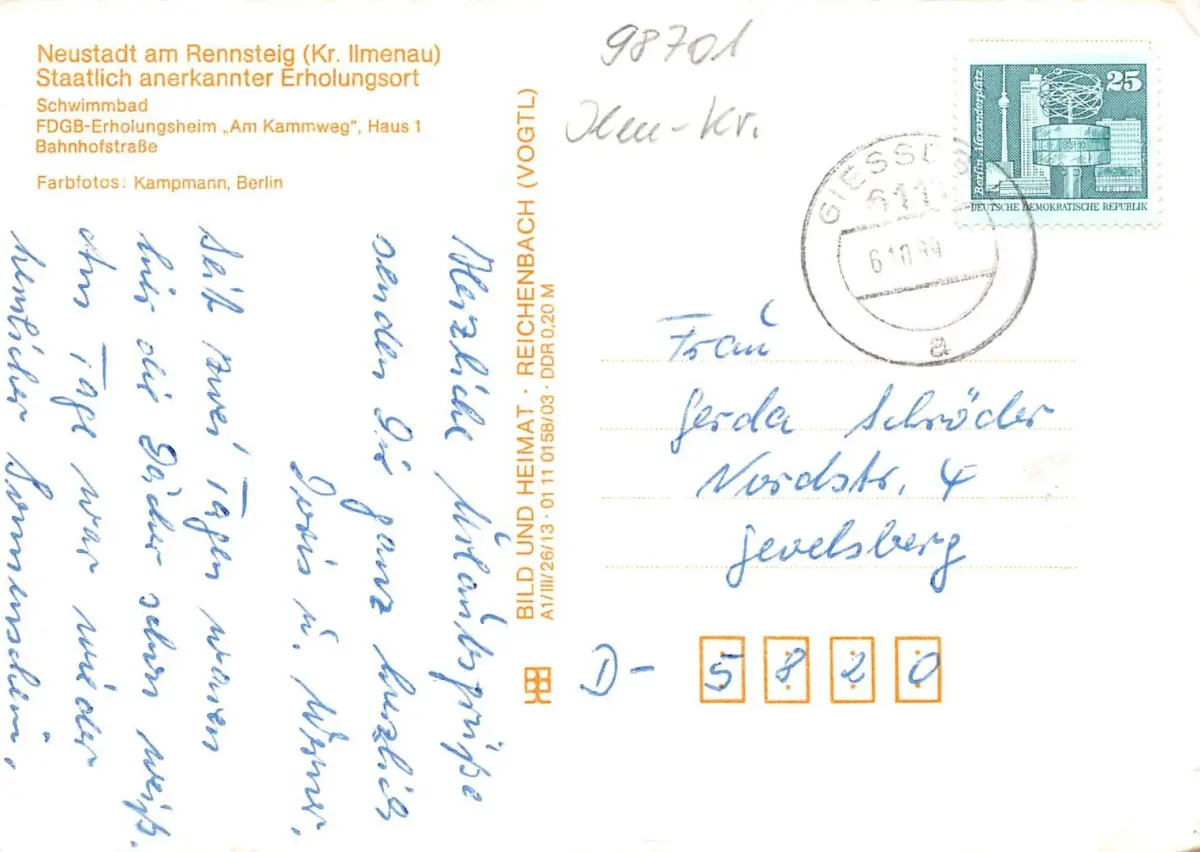 Neustadt am Rennsteig (Kr. Ilmenau)
Staatlich anerkannter Erholungsort
Schwimmbad
FDGB-Erholungsheim „Am Kammweg", Haus 1
Bahnhofstraße
Farbfotos: Kampmann, Berlin
98701
Ilm-Kr.
25
Berlin-Alexanderplatz
DEUTSCHE DEMOKRATISCHE REPUBLIK
a
BILD UND HEIMAT · REICHENBACH (VOGTL)
A1/III/26/13 · 01 11 0158/03 · DDR 0,20 M
Herzliche Urlaubsgrüße
senden Dir ganz herzlich
Doris u. Werner.
Seit zwei Tagen waren
hier die Dächer schon weiß.
Am Tage war wieder
herrlicher Sonnenschein.
Frau
Gerda Schröder
Nordstr. 4
Gevelsberg
D- 5820